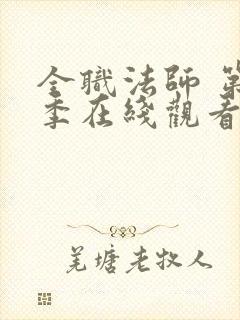 全職法師 第
季在綫觀看
羌塘老牧人